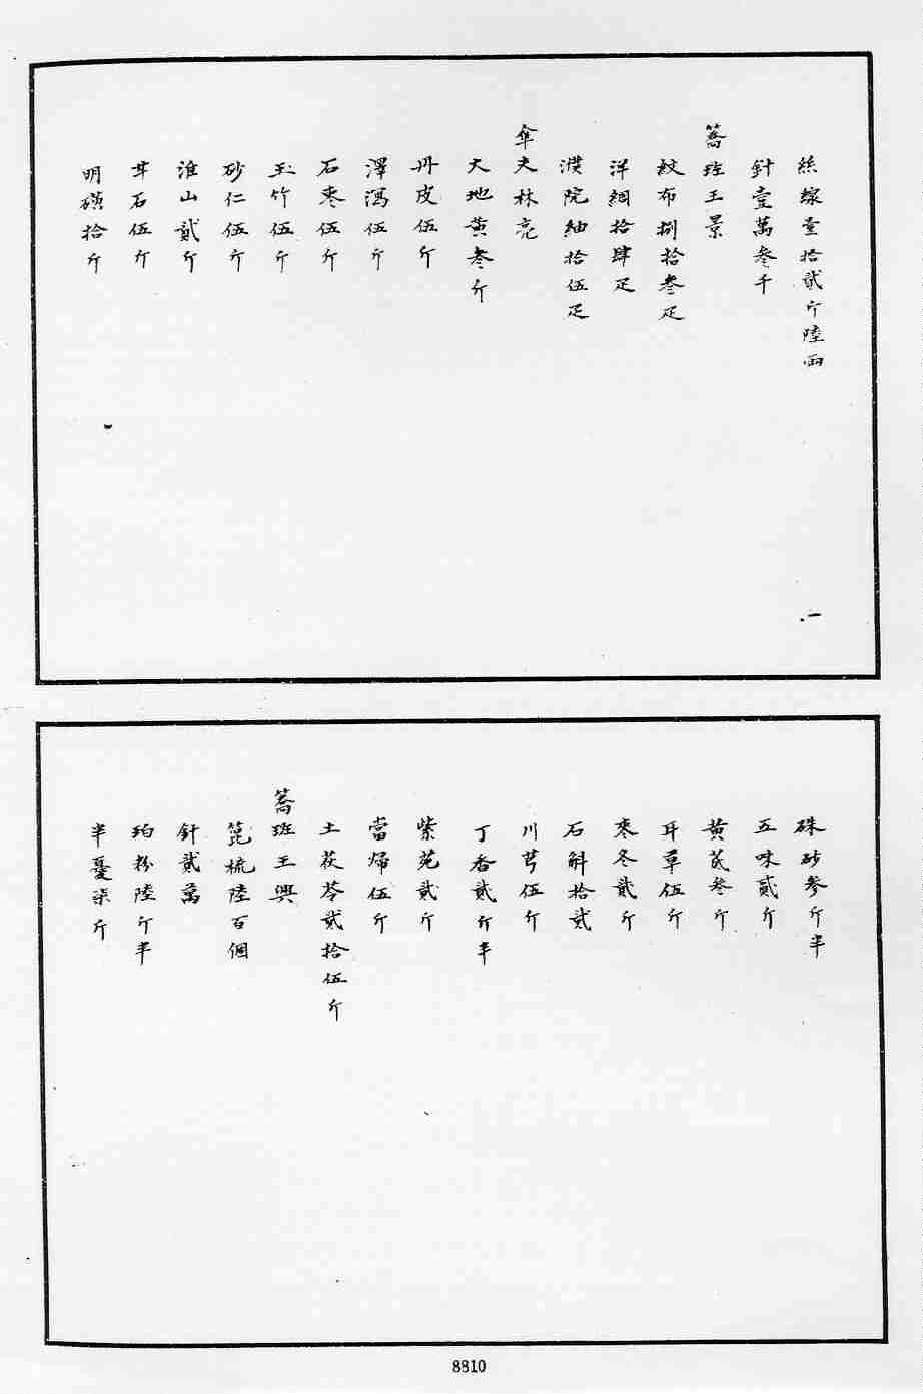 絲線壹拾貳斤陸兩
針壹萬叁千
篙班王景
紋布捌拾叁疋
洋綢拾肆疋
濮院紬拾伍疋
傘夫林亮
大地黃叁斤
丹皮伍斤
澤瀉伍斤
石棗伍斤
玉竹伍斤
砂仁伍斤
淮山貳斤
石伍斤
明磺拾斤
硃砂參斤半
五味貳斤
黃芪叁斤
耳草伍斤
寒冬貳斤
石斛拾貳
川芎伍斤
丁香貳斤半
紫苑貳斤
當歸伍斤
土茯苓貳拾伍斤
篙班王興
篦梳陸百個
針貳萬
粉陸斤半
半憂柒斤
8810